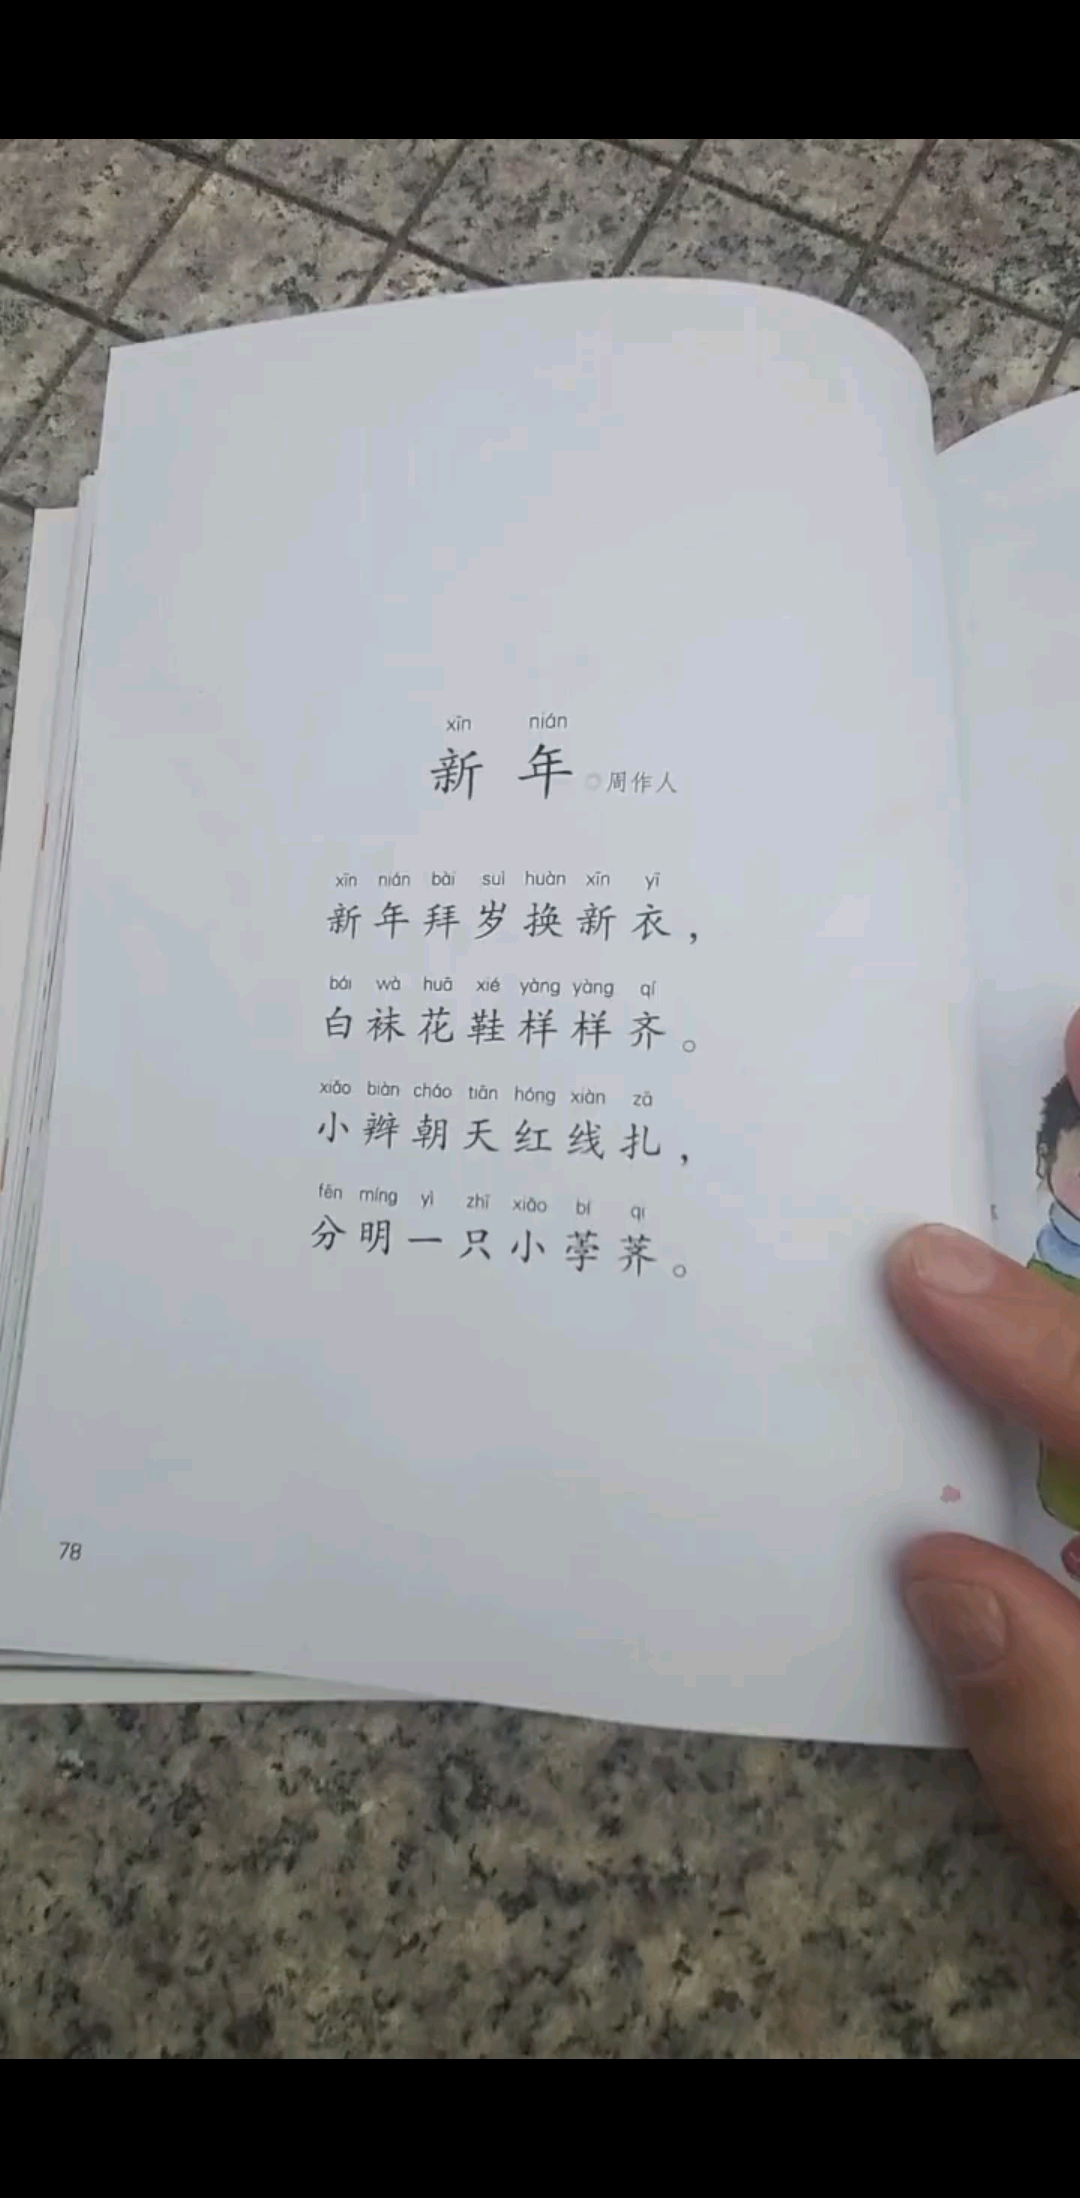 xīn nián
新年 周作人
xīn nián bài suì huàn xīn yī
新年拜岁换新衣，
bái wà huā xié yàng yàng qí
白袜花鞋样样齐。
xiǎo biàn cháo tiān hóng xiàn zā
小辫朝天红线扎，
fēn míng yì zhī xiǎo bí qi
分明一只小荸荠。
78